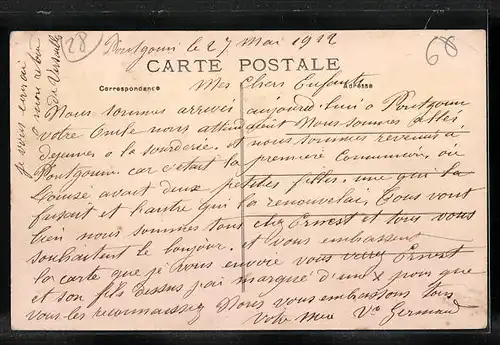 28
68
Pontgouin le 27 mai 1912
CARTE POSTALE
Correspondance
Adresse
Mes Chers Enfants
Nous sommes arrivés aujourd'hui à Pontgouin
votre Oncle nous attendait Nous sommes allés
dejeuner a la sourderie et nous sommes revenus à
Pontgouin car c'était la première Communion, où
Louise avait deux petites filles, une qui la
faisait et l'autre qui la renouvelait. Tous vont
bien nous sommes tous chez Ernest et tous vous
souhaitent le bonjour et vous embrassent
la carte que je vous envoie vous verrez Ernest
et son fils dessus j'ai marqué d'un x pour que
vous les reconnaissez Nous vous embrassons tous
votre mère Vve Germond
je vous écrirai
a mon retour
de Versailles